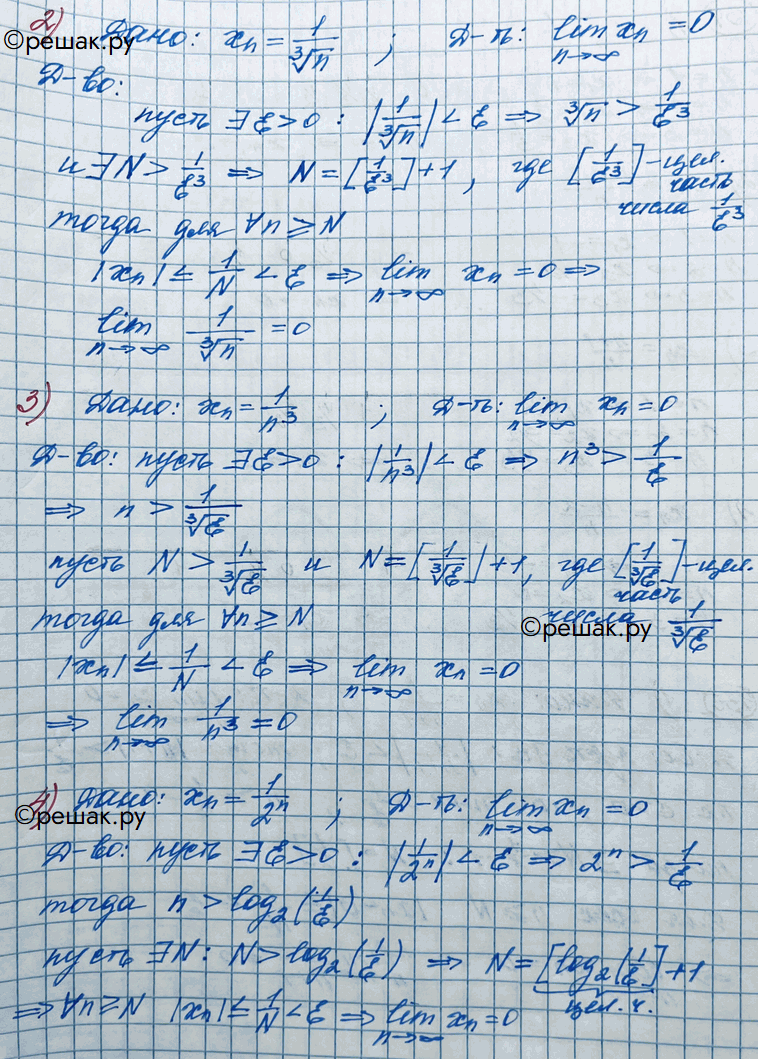 2) Дано: xₙ = 1/∛n ; Д-ть: lim xₙ = 0
n→∞
©решак.ру
Д-во:
пусть ∃ ε > 0 : |1/∛n| < ε ⇒ ∛n > 1/ε³
и ∃ N > 1/ε³ ⇒ N = [1/ε³] + 1, где [1/ε³] - цел.
часть
числа 1/ε³
тогда для ∀n ≥ N
|xₙ| ≤ 1/N < ε ⇒ lim xₙ = 0 ⇒
n→∞
lim 1/∛n = 0
n→∞
3) Дано: xₙ = 1/n³ ; Д-ть: lim xₙ = 0
n→∞
Д-во: пусть ∃ ε > 0 : |1/n³| < ε ⇒ n³ > 1/ε
⇒ n > 1/∛ε
пусть N > 1/∛ε и N = [1/∛ε] + 1, где [1/∛ε] - цел.
часть
тогда для ∀n ≥ N числа 1/∛ε
©решак.ру
|xₙ| ≤ 1/N < ε ⇒ lim xₙ = 0
n→∞
⇒ lim 1/n³ = 0
n→∞
4) Дано: xₙ = 1/2ⁿ ; Д-ть: lim xₙ = 0
n→∞
©решак.ру
Д-во: пусть ∃ ε > 0 : |1/2ⁿ| < ε ⇒ 2ⁿ > 1/ε
тогда n > log₂(1/ε)
пусть ∃ N : N > log₂(1/ε) ⇒ N = [log₂(1/ε] + 1
цел. ч.
⇒ ∀n ≥ N |xₙ| ≤ 1/N < ε ⇒ lim xₙ = 0
n→∞